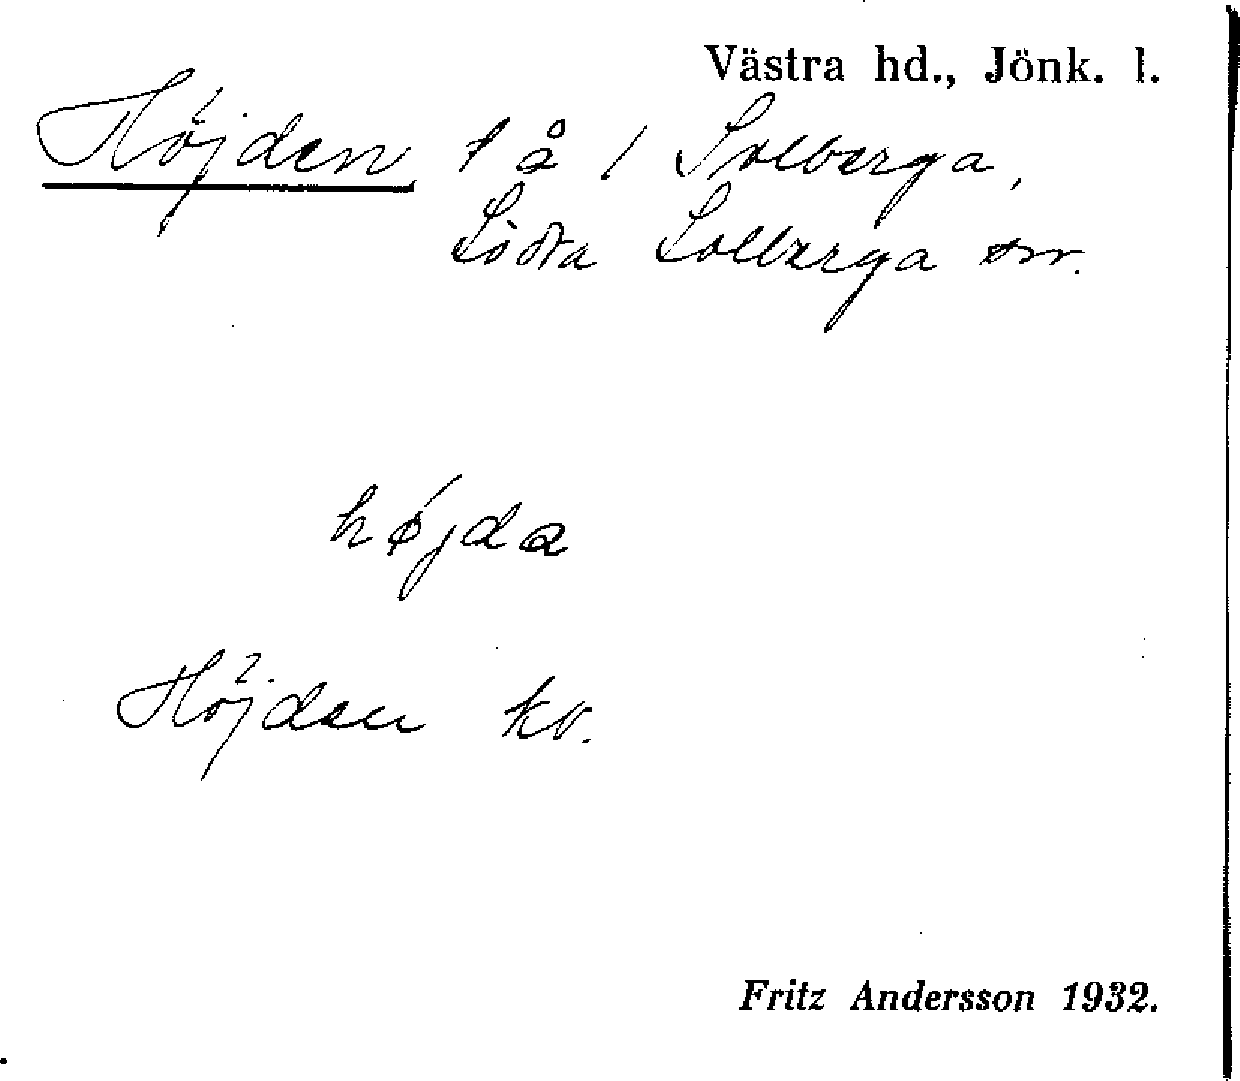 Västra hd., Jönk. l.
Höjden t å / Solberga,
Södra Solberga sn.
højda
Höjden kv.
Fritz Andersson 1932.